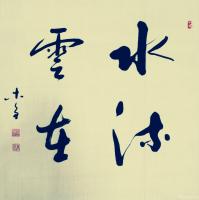 水流
雲在